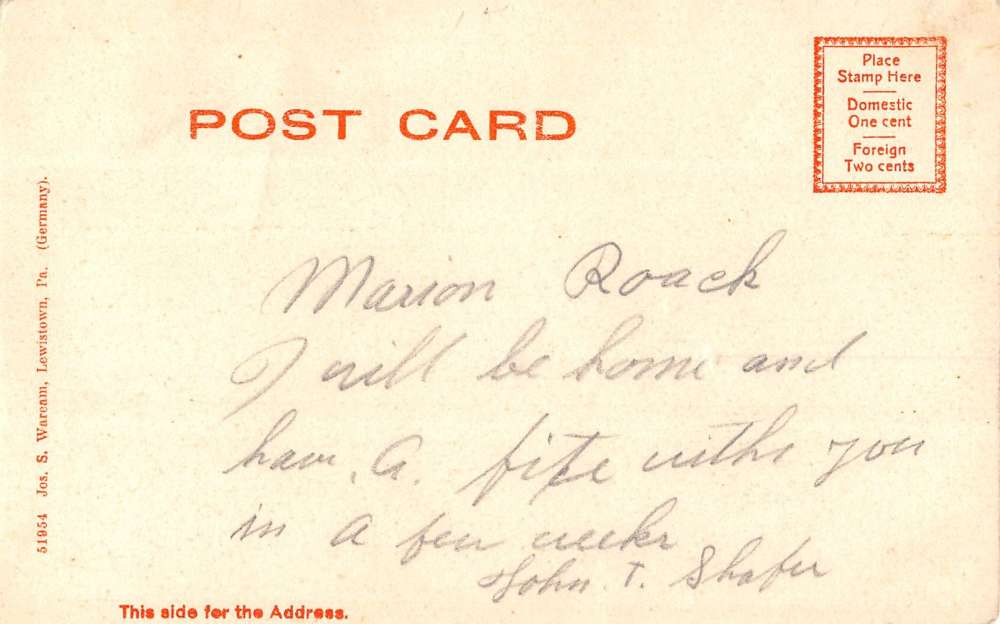 POST CARD
Place
Stamp Here
Domestic
One cent
Foreign
Two cents
51954 Jos. S. Waream, Lewistown, Pa. (Germany).
Marion Roack
I will be home and
have. a. fite withe you
in a few weeks
John. T. Shafer
This side for the Address.